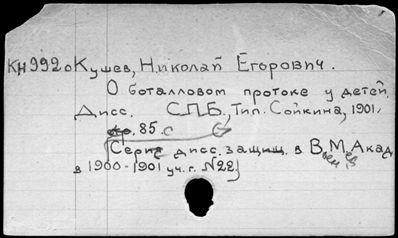 КН 992о Кушев, Николай Егорович.
О боталловом протоке у детей.
Дисс. С.П.Б., Тип. Сойкина, 1901.
стр. 85. с
(Серия дисс. защищ. в В. М. Акад.
воен. ев
в 1900-1901 уч. г. №22)